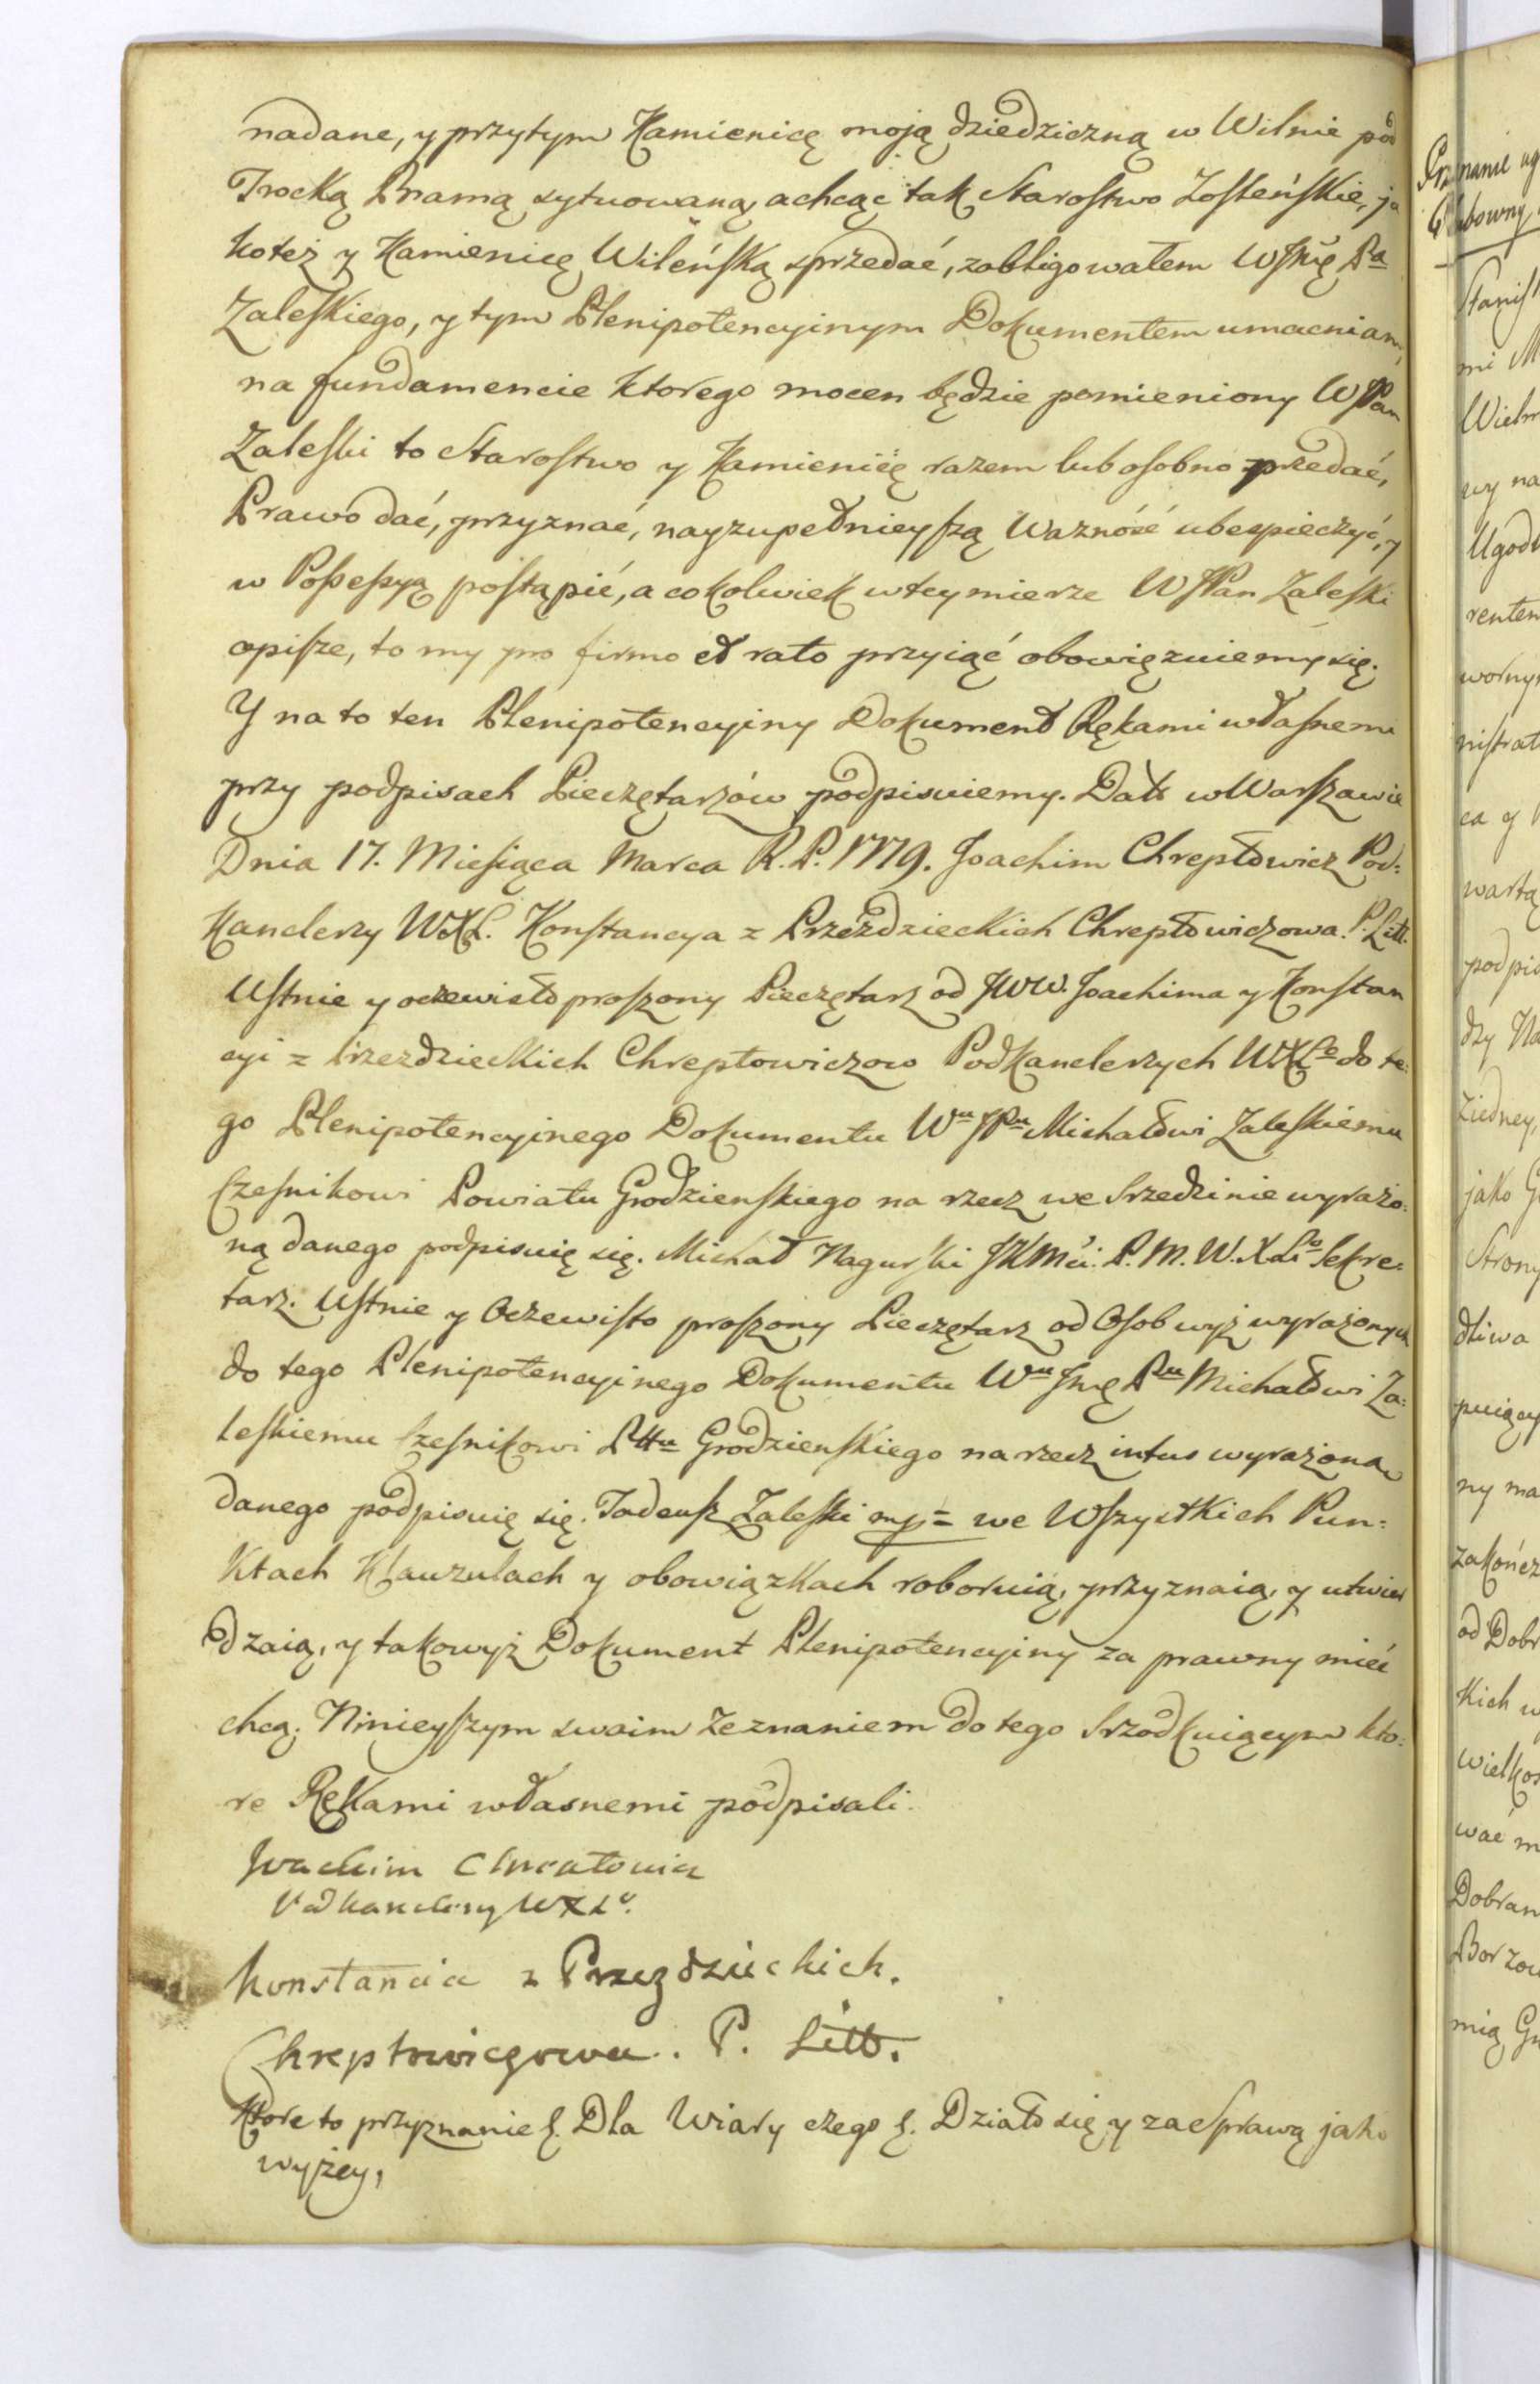 nadane, y przytym Kamienicę moją dziedziczną w Wilnie pod
Trocką Bramą sytuowaną, a chcąc tak Starostwo Zosleńskie, ja
koteż y Kamienicę Wileńską sprzedać, zobligowałem WJmę Pa
Zaleskiego, y tym Plenipotencyinym Dokumentem umacniam,
na fundamencie ktorego mocen będzie pomieniony WJPan
Zaleski to Starostwo y Kamienicę razem lub osobno przedać,
Prawo dać, przyznać, nayzupełnieyszą Ważność ubespieczyć, y
w Possessyą postąpić, a cokolwiek w tey mierze WJPan Zaleski
opisze, to my pro firmo et rato przyiąć obowięzuiemy się.
Y na to ten Plenipotencyiny Dokument Rękami własnemi
przy podpisach Pieczętarzów podpisuiemy. Datt w Warszawie
Dnia 17. Miesiąca Marca R. P. 1779. Joachim Chreptowicz Pod:
Kanclerzy WXL. Konstancya z Przeździeckich Chreptowiczowa. P. Litt.
Ustnie y oczewisto proszony Pieczętarz od JWW. Joachima y Konstan
cyi z Przezdzieckich Chreptowiczow PodKanclerzych WXLo do te:
go Plenipotencyinego Dokumentu Wu JPu Michałowi Zaleskiemu
Czesnikowi Powiatu Grodzienskiego na rzecz we Srzedzinie wyrażo:
ną danego podpisuię się. Michał Nagurski JKMci. P. M. W. X Lo Sekre:
tarz. Ustnie y Oczewisto proszony Pieczętarz od Osob wyż wyrażonych
do tego Plenipotencyinego Dokumentu Wu Jmę Pu Michałowi Za:
leskiemu Czesnikowi Pttu Grodzienskiego na rzecz intus wyrażoną
danego podpisuię się. Tadeusz Zaleski mp = we Wszystkich Pun:
Ktach Klauzulach y obowiązkach roboruią, przyznaią, y utwier
dzaią, y takowyż Dokument Plenipotencyiny za prawny mieć
chcą. Ninieyszym swoim Zeznaniem do tego Srzodkuiącym kto:
re Rękami własnemi podpisali.
Joachim Chreptowicz
Podkanclerzy WXLo.
Konstancia z Przezdzieckich.
Chreptowiczowa. P. Litt.
Ktore to przyznanie §. Dla Wiary czego §. Działo się y za Sprawą jako
wyżey,